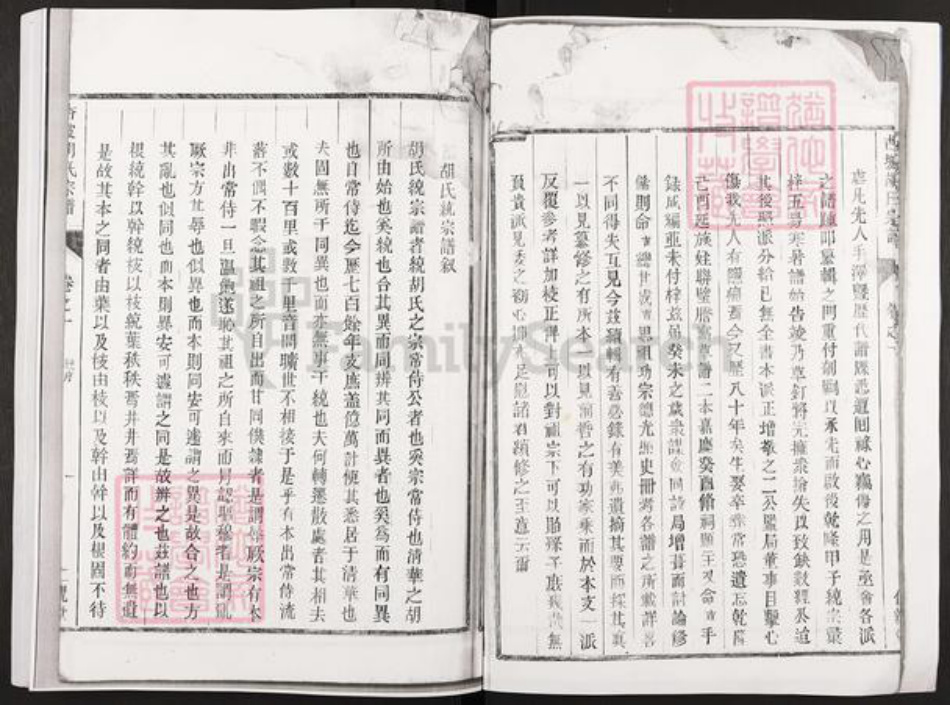 虔凡先人手澤曁歷代譜牒悉遭回祿心竊傷之用是亟會各派
之譜陳叩纂輯之門重付剞劂以承先而啟後乾隆甲子統宗
梓五易寒暑譜始告竣乃草釘將完擁衆搶失以致缺數經公追
其後照派分給已無全書本派正增敬之二公曁局董事目擊心
傷我先人有隱痛焉今又歷八十年矣生娶卒葬常恐遺忘乾隆
己酉延族姪聯璧謄草譜二本嘉慶癸酉脩祠 命 手
錄成編並未付梓茲癸未之歲衆謀僉同設局增葺而討論修
飾則命 思祖功宗德光照史冊考各譜之所載詳畧
不同得失互見今茲續輯有善必錄有美弗遺摘其要而採其真
一以見纂修之有所本一以見前哲之有功家乘而於本支一派
反覆參考詳加校正庶上可以對祖宗下可以貽孫子庶幾無
負責派見委之初心 足慰諸君類修之至意云爾
胡氏統宗譜叙
胡氏統宗譜者統胡氏之宗常侍公者也奚宗常侍也清華之胡
所由始也奚統也合其異而同辨其同而異者也奚爲而有同異
也自常侍迄今歷七百餘年支庶蓋億萬計使其悉居于清華也
夫固無所于同異也而亦無事于統也夫何轉遷散處者其相去
或數十百里或數千里音問曠世不相接于是乎有本出常侍流
落不偶不暇念其祖之所自出而甘同僕隸者是謂 厥宗有本
非出常侍一旦溫飽遂恥其祖之所自來而冒認 者是謂亂
厥宗方其辱也似異也而本則同安可遽謂之異是故合之也方
其亂也似同也而本則異安可遽謂之同是故辨之也茲譜也以
根統幹以幹統枝以枝統葉秩秩焉井井焉詳而有體約而無遺
是故其本之同者由葉以及枝由枝以及幹由幹以及根固不待
胡氏宗譜
卷之一